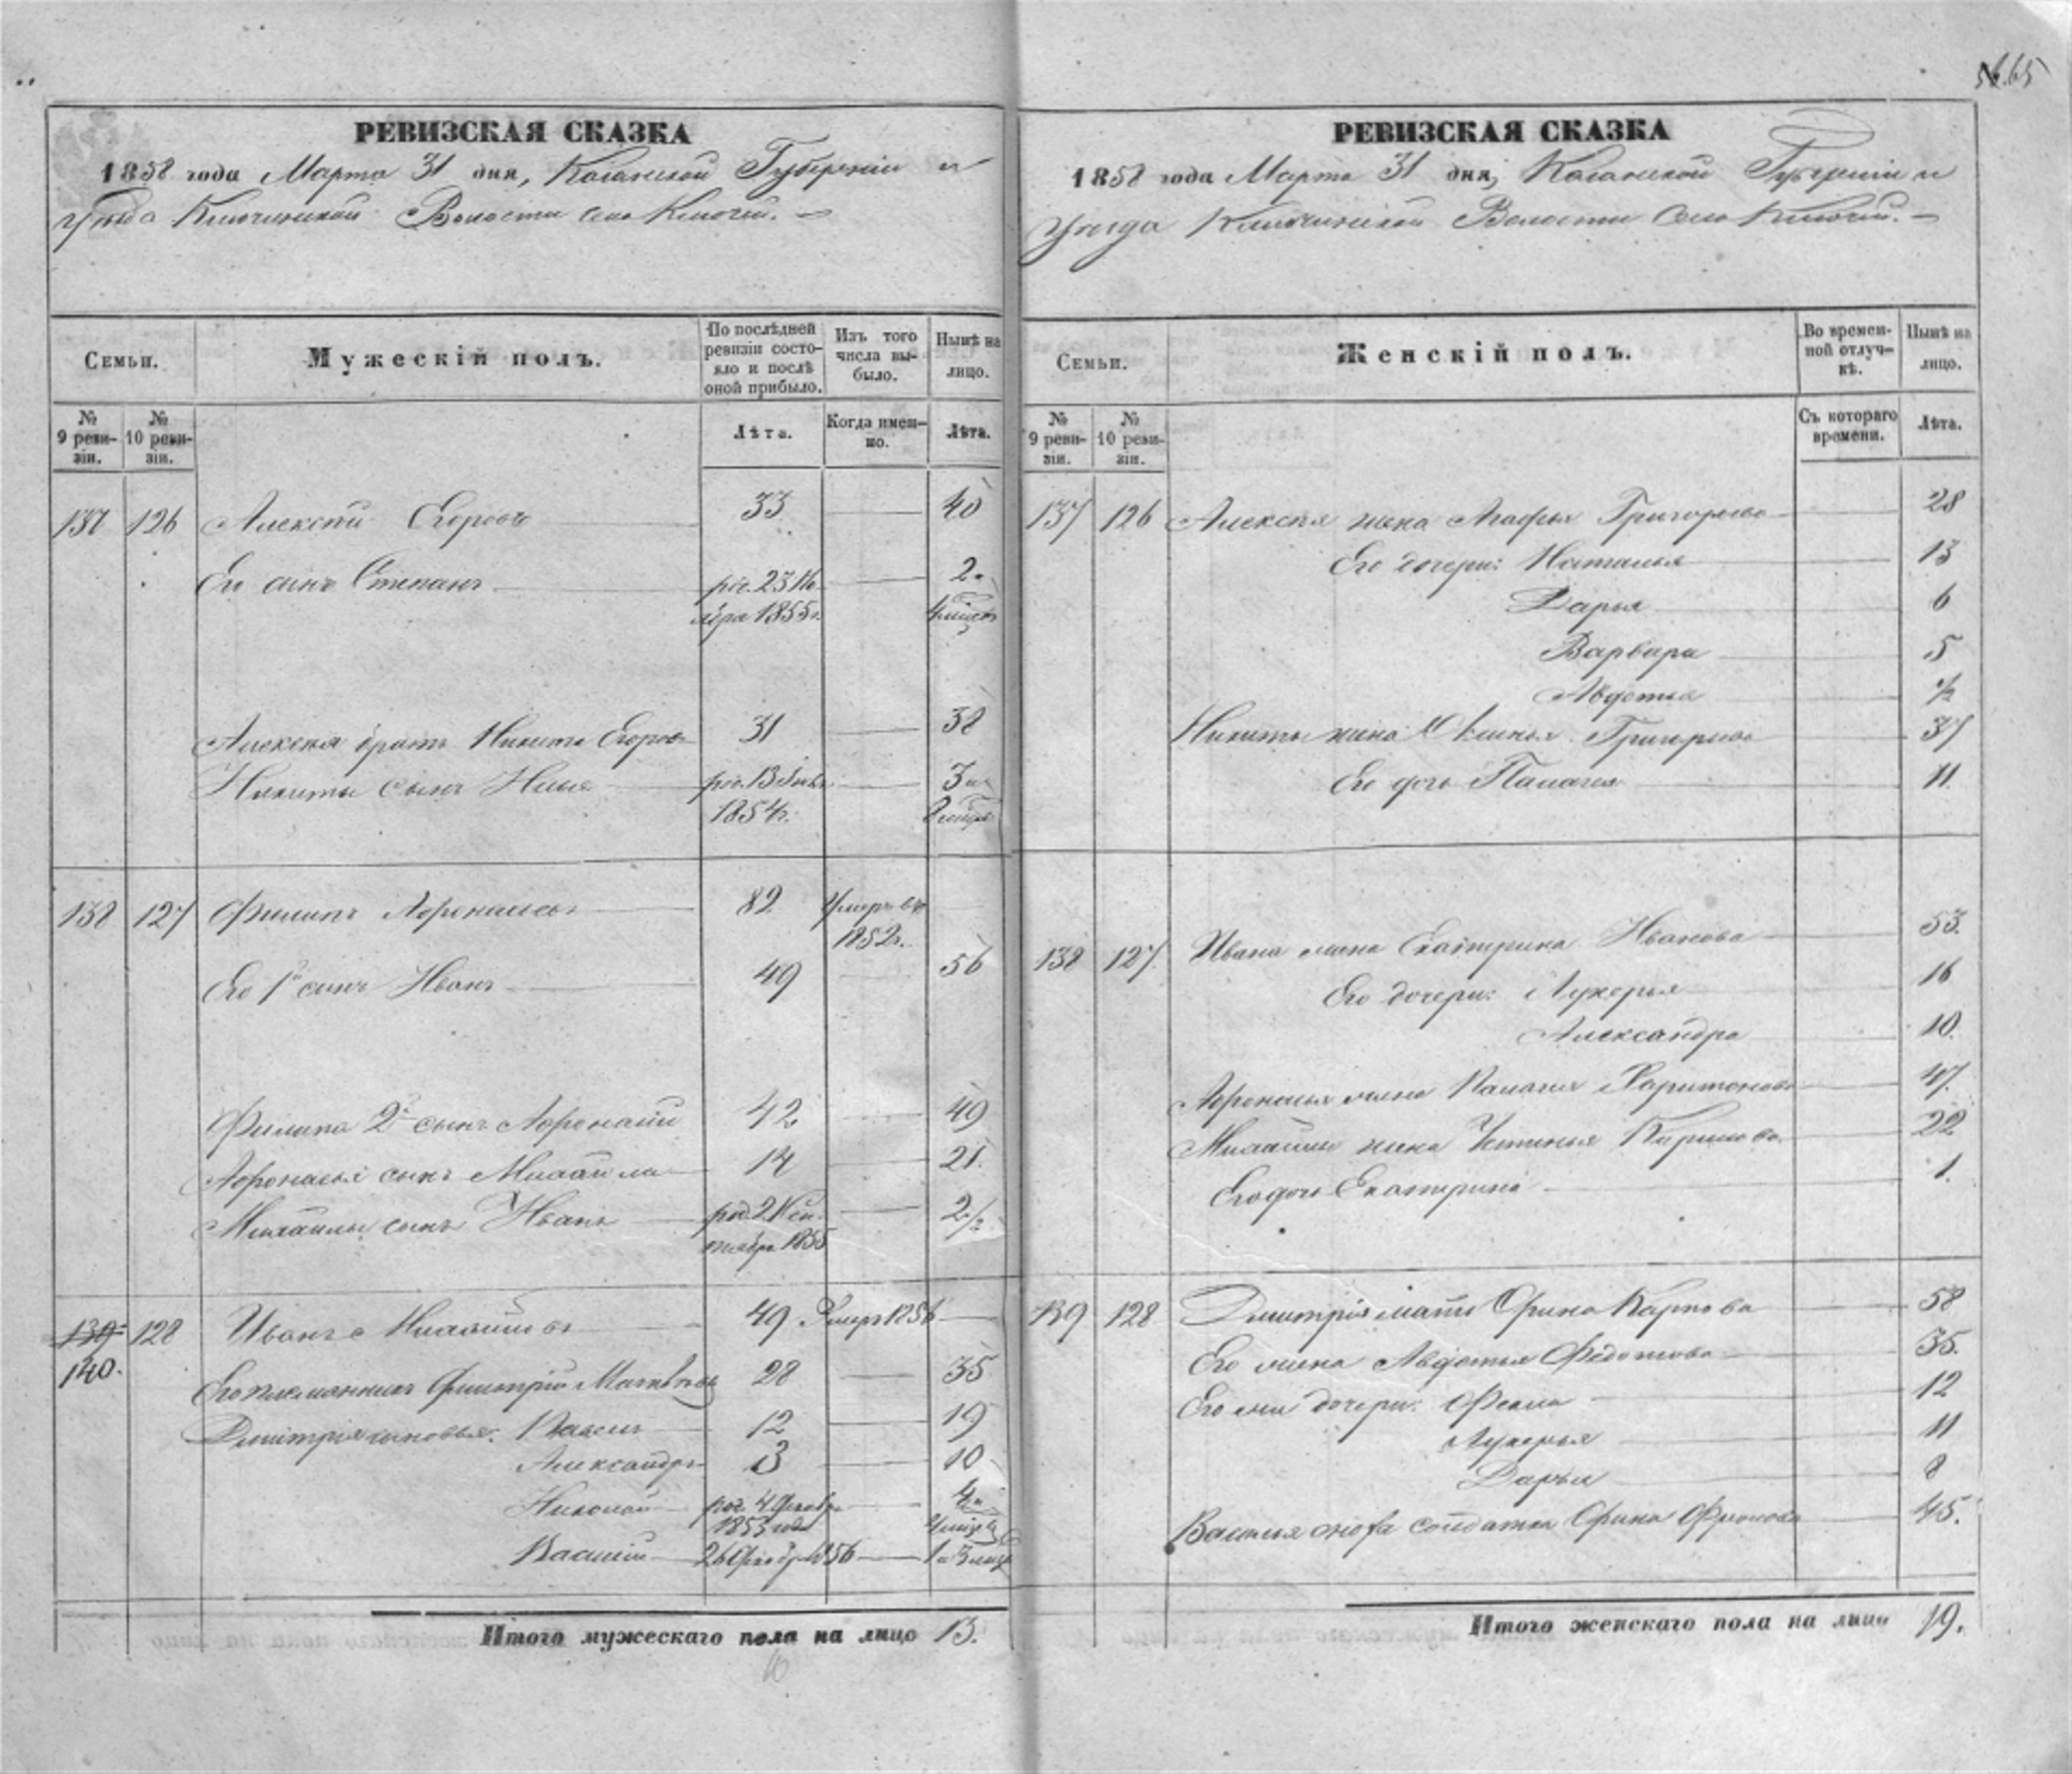 56.65
РЕВИЗСКАЯ СКАЗКА
1858 года Марта 31 дня, Казанской Губернии и
Уѣзда Ключинской Волости села Ключей.
Семьи.
Мужескій полъ.
По послѣдней ревизіи состояло и послѣ оной прибыло.
Изъ того числа выбыло.
Нынѣ на лицо.
№ 9 ревизіи.
№ 10 ревизіи.
Лѣта.
Когда именно.
Лѣта.
137 126 Алексѣй Егоровъ 33 40
Его сынъ Степанъ рог. 23 Но- 2 и
ября 1855г. 4 мѣсяц
Алексѣя братъ Никита Егоровъ 31 38
Никиты сынъ Илья 3 и
1854г.
138 127 Филипъ Афонасьевъ 82 Умеръ въ
1852г.
Его 1й сынъ Иванъ 49 56
Филипа 2й сынъ Афонасій 42 49
Афонасья сынъ Михайла 14 21.
Михайлы сынъ Иванъ род. 2 Сен- 2 1/2
тября 1855
139 128 Иванъ 49 Умеръ 1856
140.
Его племянникъ Дмитрій Матвѣевъ 28 35
Дмитрія сыновья: 12 19
Александръ 3 10
Николай рог. 4 Декабр 4 и
1853 года 4 мѣсяц
Василій 26 Декабр 1856 1 и 3 мѣсяц
Итого мужескаго пола на лицо 13.
РЕВИЗСКАЯ СКАЗКА
1858 года Марта 31 дня, Казанской Губерніи и
Уѣзда Ключинской Волости села Ключей.
Семьи.
Женскій полъ.
Во временной отлучкѣ.
Нынѣ на лицо.
№ 9 ревизіи.
№ 10 ревизіи.
Съ котораго времени.
Лѣта.
137 126 Алексѣя жена Агафья Григорьева 28
Его дочери: Наталья 13
Дарья 6
Варвара 5
Авдотья 1/2
Никиты жена Аксинья Григорьева 37
Его дочь Палагея 11.
138 127 Ивана жена Екатерина Иванова 53.
Его дочери: Лукерья 16
Александра 10.
Афонасья жена Палагея Харитонова 47.
Михайлы жена Устинья Кирилова 22
Его дочь Екатерина 1.
139 128 Дмитрія мать Орина Карпова 58
Его жена Авдотья Федотова 35.
Его дочери: Фекла 12
Лукерья 11
Дарья 8
Василья сноха солдатка Орина Фролова 45.
Итого женскаго пола на лицо 19.